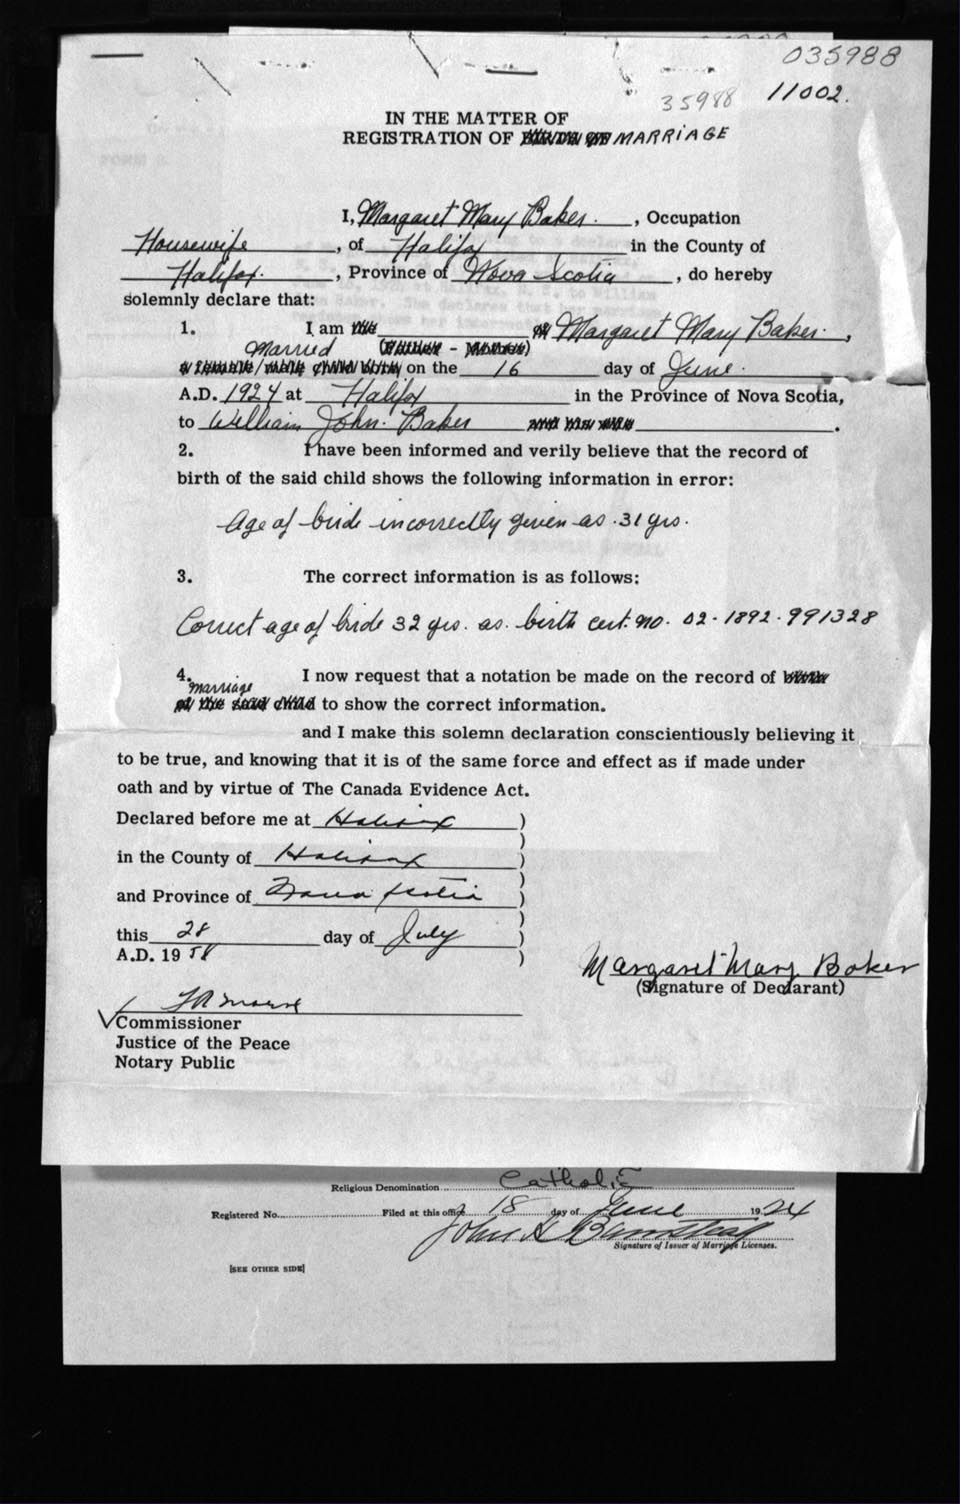 035988
35988 11002.
IN THE MATTER OF
REGISTRATION OF MARRIAGE
I, Margaret Mary Baker. , Occupation
Housewife , of Halifax in the County of
Halifax. , Province of Nova Scotia , do hereby
solemnly declare that:
1. I am Margaret Mary Baker. ,
Married
on the 16 day of June.
A.D. 1924 at Halifax in the Province of Nova Scotia,
to William John. Baker .
2. I have been informed and verily believe that the record of
birth of the said child shows the following information in error:
Age of bride incorrectly given as 31 yrs.
3. The correct information is as follows:
Correct age of bride 32 yrs. as. birth cert. no. 02-1892-991328
4. I now request that a notation be made on the record of
marriage
to show the correct information.
and I make this solemn declaration conscientiously believing it
to be true, and knowing that it is of the same force and effect as if made under
oath and by virtue of The Canada Evidence Act.
Declared before me at Halifax )
in the County of Halifax )
and Province of Nova Scotia )
this 28 day of July )
A.D. 1958 )
Margaret Mary Baker
(Signature of Declarant)
Commissioner
Justice of the Peace
Notary Public
Religious Denomination Catholic
Registered No. Filed at this office 18 day of June 1924
John H Barnstead
Signature of Issuer of Marriage Licenses.
[SEE OTHER SIDE]